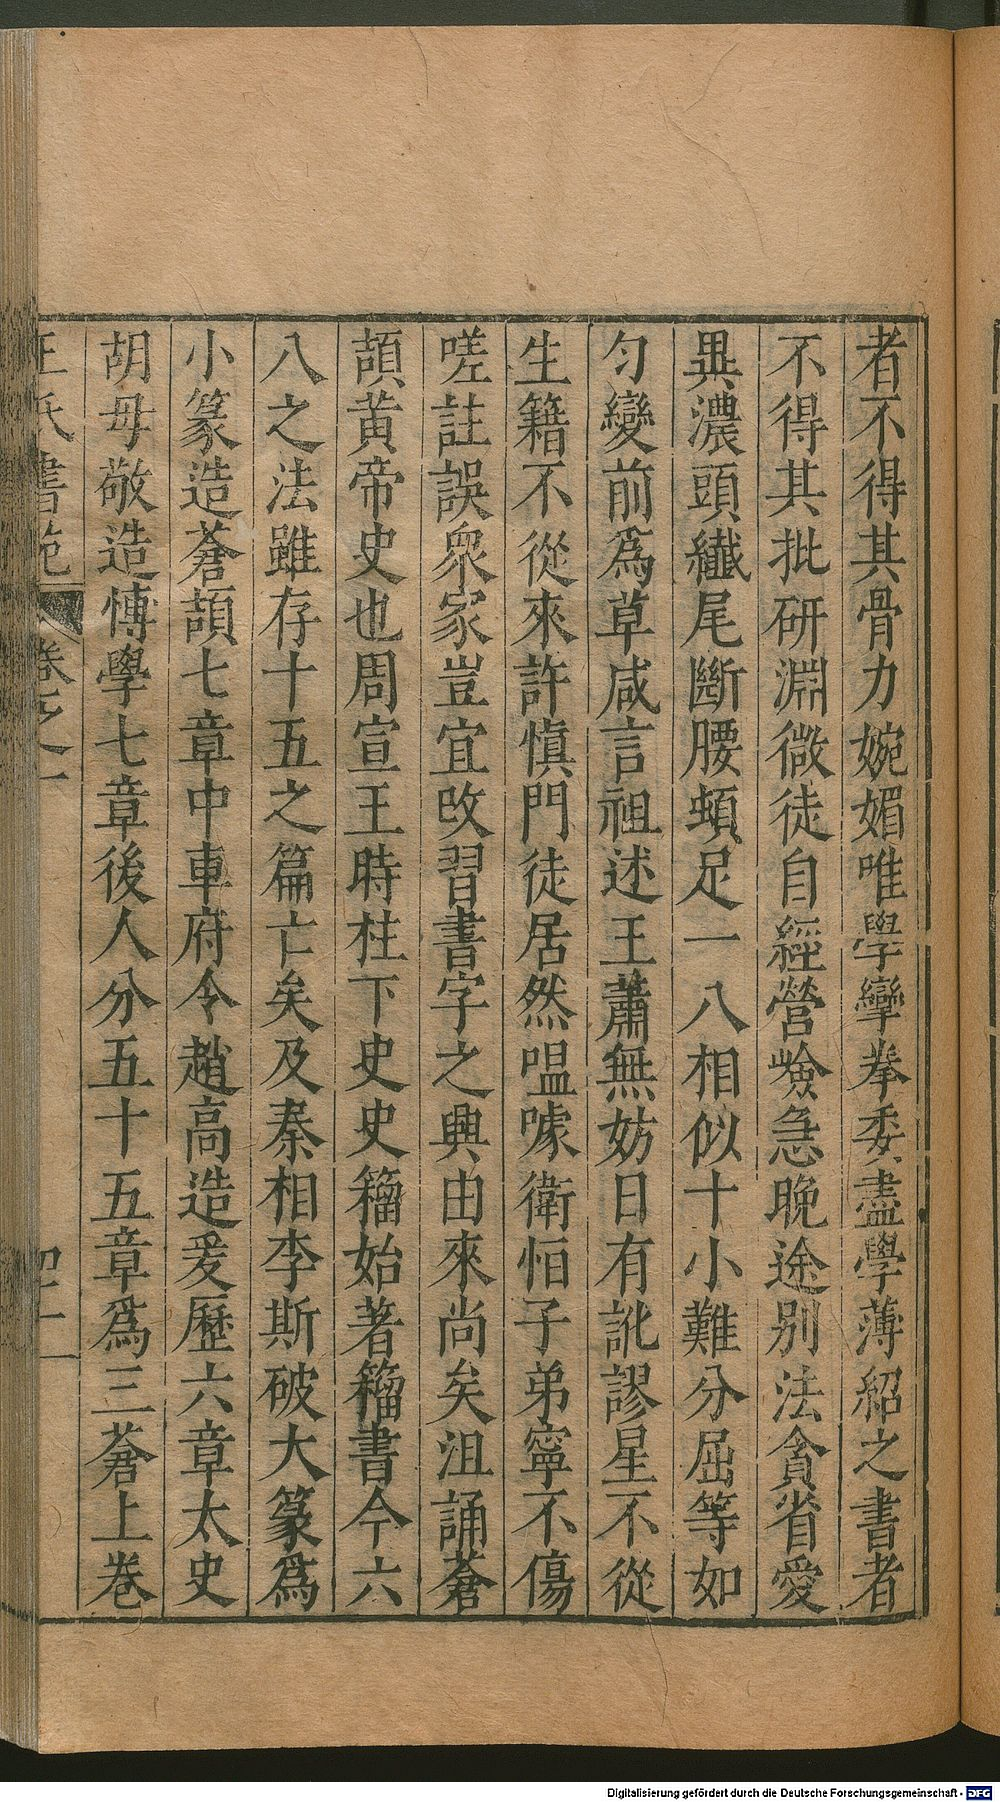 者不得其骨力婉媚唯學攣拳委盡學薄紹之書者
不得其批研淵微徒自經營嶮急晚途別法貪省愛
異濃頭纖尾斷腰頓足一八相似十小難分屈等如
勻變前爲草咸言祖述王蕭無妨日有訛謬星不從
生籍不從來許愼門徒居然嗢噱衛恒子弟寧不傷
嗟註誤衆家豈宜改習書字之興由來尚矣沮誦蒼
頡黃帝史也周宣王時柱下史史籒始著籒書今六
八之法雖存十五之篇亡矣及秦相李斯破大篆爲
小篆造蒼頡七章中車府令趙高造爰歷六章太史
胡毋敬造愽學七章後人分五十五章爲三蒼上卷
王氏書苑 卷之一
Digitalisierung gefördert durch die Deutsche Forschungsgemeinschaft - DFG